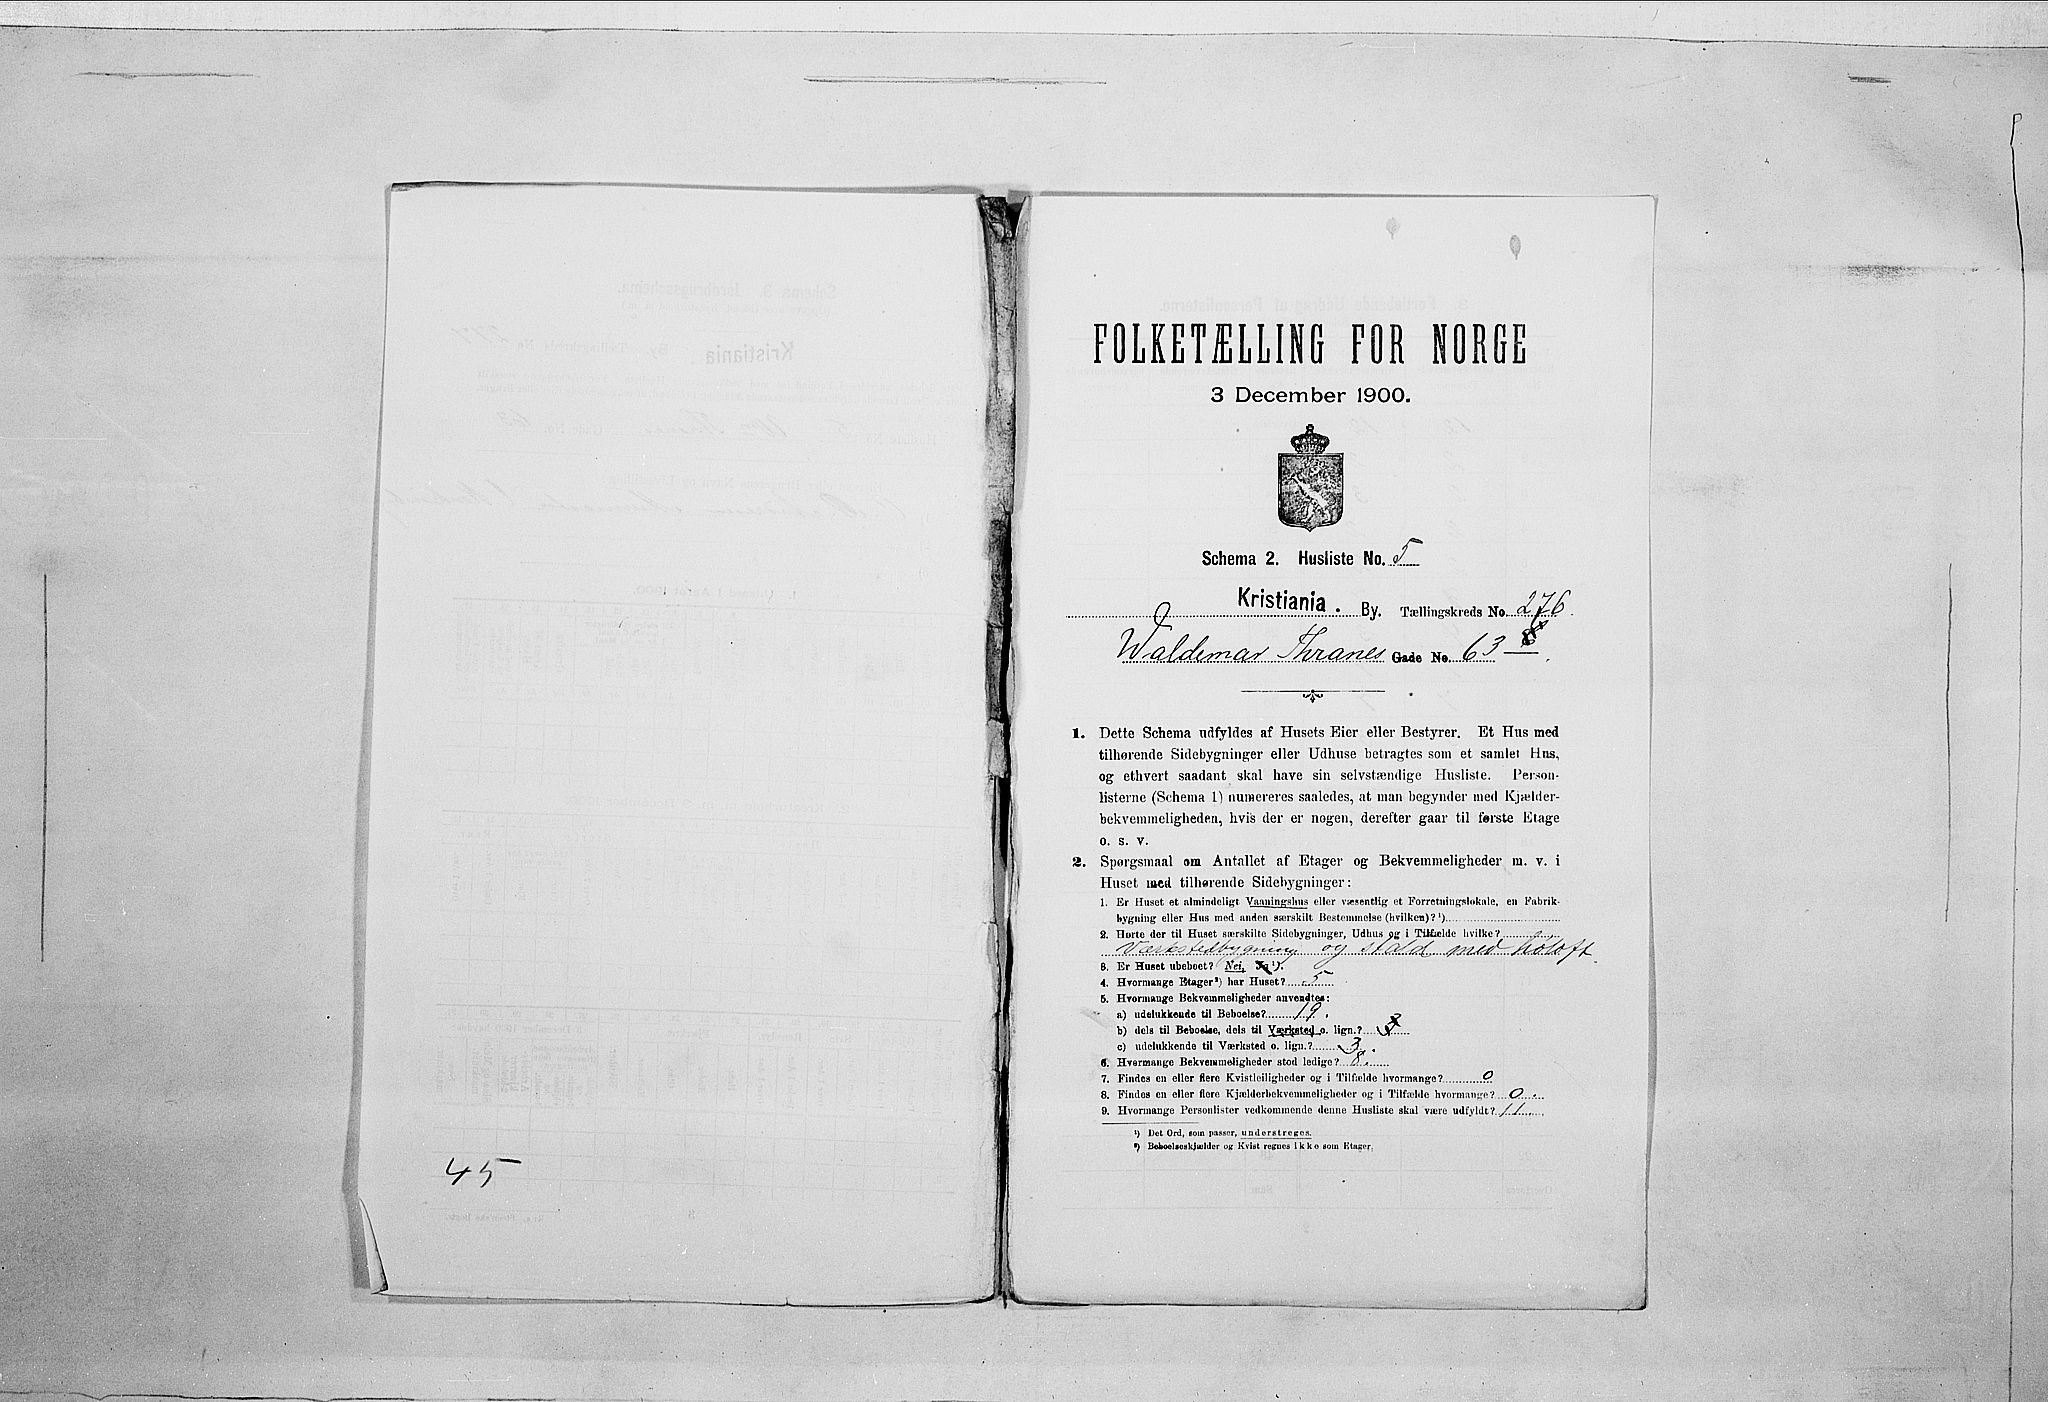 45
FOLKETÆLLING FOR NORGE
3 December 1900.
Schema 2. Husliste No. 5
Kristiania. By. Tællingskreds No. 276.
Waldemar Thranes Gade No. 63
1. Dette Schema udfyldes af Husets Eier eller Bestyrer. Et Hus med
tilhørende Sidebygninger eller Udhuse betragtes som et samlet Hus,
og ethvert saadant skal have sin selvstændige Husliste. Person-
listerne (Schema 1) numereres saaledes, at man begynder med Kjælder-
bekvemmeligheden, hvis der er nogen, derefter gaar til første Etage
o. s. v.
2. Spørgsmaal om Antallet af Etager og Bekvemmeligheder m. v. i
Huset med tilhørende Sidebygninger:
1. Er Huset et almindeligt Vaaningshus eller væsentlig et Forretningslokale, en Fabrik-
bygning eller Hus med anden særskilt Bestemmelse (hvilken)?¹)
2. Hørte der til Huset særskilte Sidebygninger, Udhus og i Tilfælde hvilke?
Værkstedbygning og stald med höloft.
3. Er Huset ubeboet? Nei, Ja¹).
4. Hvormange Etager²) har Huset? 5
5. Hvormange Bekvemmeligheder anvendtes:
a) udelukkende til Beboelse? 19.
b) dels til Beboelse, dels til Værksted o. lign.?
c) udelukkende til Værksted o. lign.? 3.
6. Hvormange Bekvemmeligheder stod ledige? 8.
7. Findes en eller flere Kvistleiligheder og i Tilfælde hvormange? 0
8. Findes en eller flere Kjælderbekvemmeligheder og i Tilfælde hvormange? 0.
9. Hvormange Personlister vedkommende denne Husliste skal være udfyldt? 11.
¹) Det Ord, som passer, understreges.
²) Beboelseskjælder og Kvist regnes ikke som Etager.